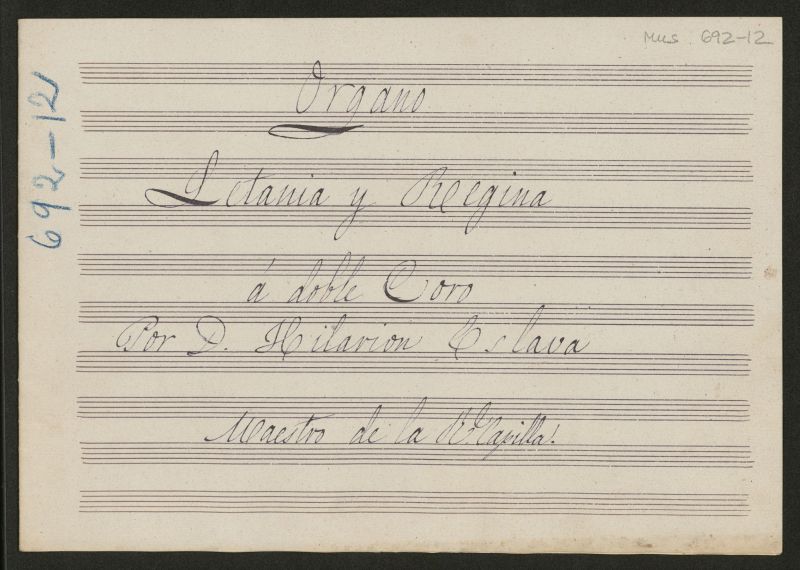 Mus. 692-12
692-12
Organo
Letania y Regina
á doble Coro
Por D. Hilarion Eslava
Maestro de la Rl Capilla.